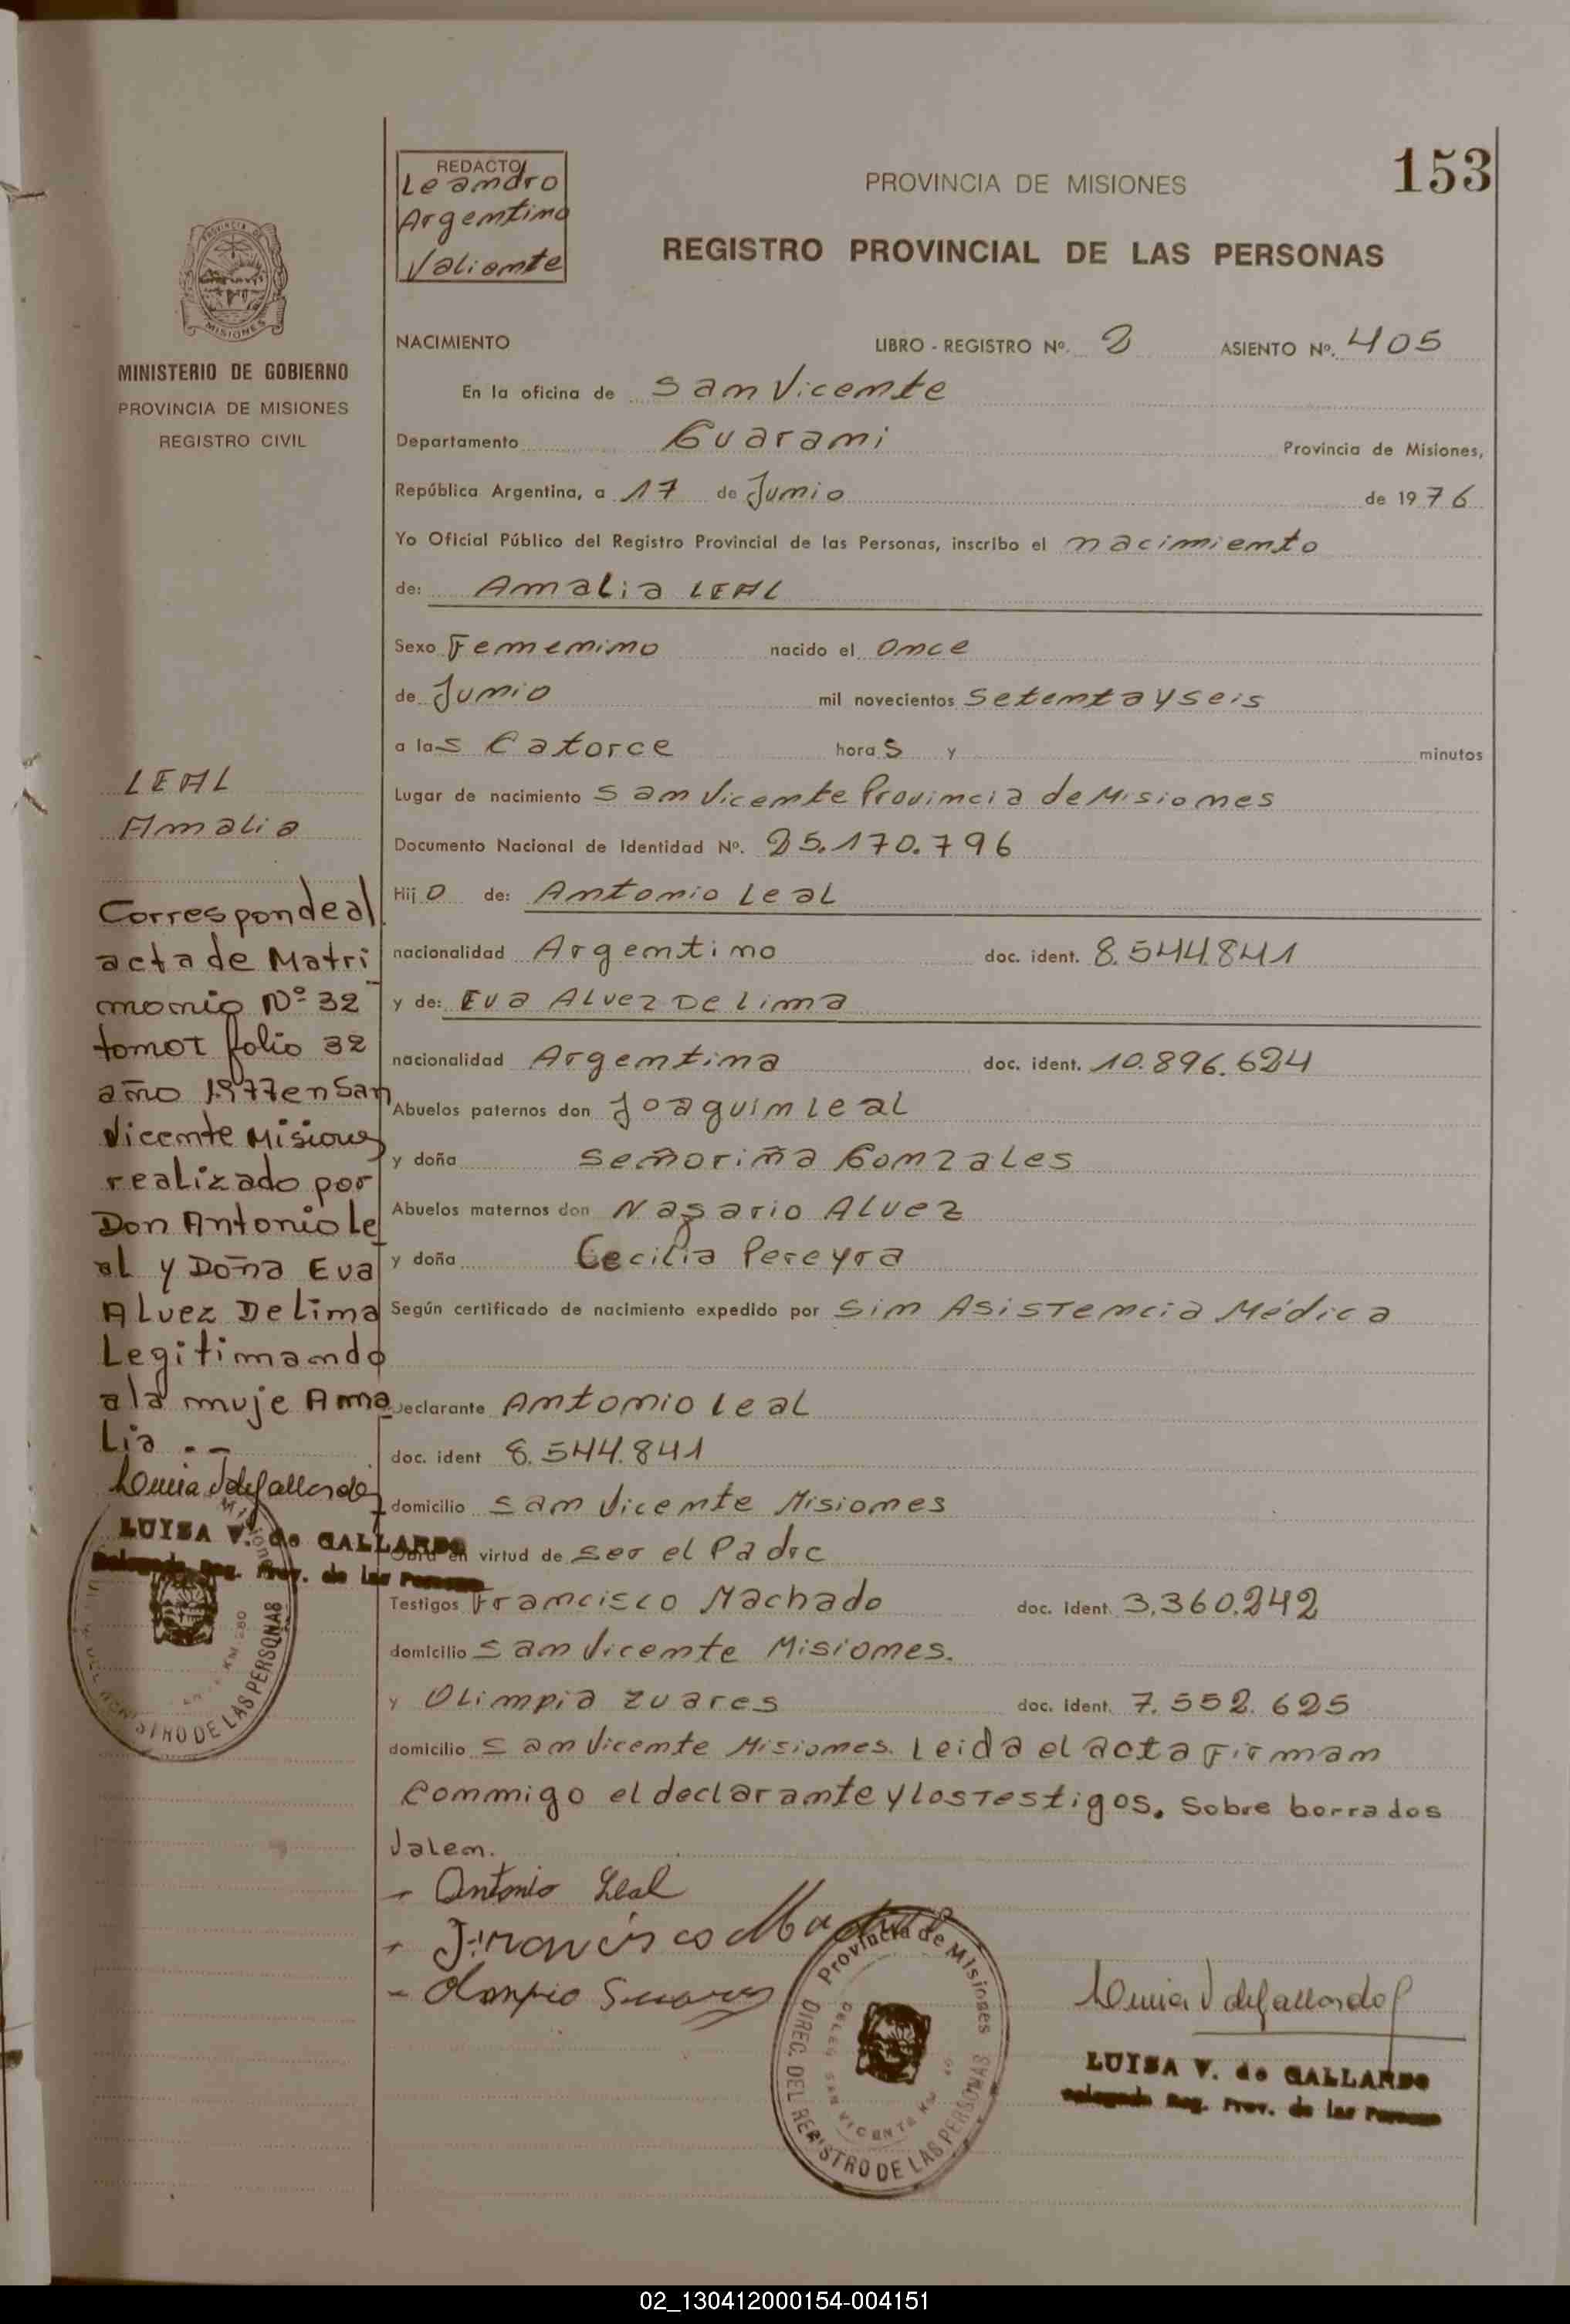 153
REDACTO
Leandro
Argentino
Valiente
PROVINCIA DE MISIONES
REGISTRO PROVINCIAL DE LAS PERSONAS
PROVINCIA DE
MISIONES
MINISTERIO DE GOBIERNO
PROVINCIA DE MISIONES
REGISTRO CIVIL
NACIMIENTO LIBRO - REGISTRO Nº. 2 ASIENTO Nº. 405
En la oficina de San Vicente
Departamento Guarani Provincia de Misiones,
República Argentina, a 17 de Junio de 1976
Yo Oficial Público del Registro Provincial de las Personas, inscribo el nacimiento
de: Amalia LEAL
Sexo Femenino nacido el Once
de Junio mil novecientos Setenta y seis
a las Catorce horas y minutos
Lugar de nacimiento San Vicente Provincia de Misiones
Documento Nacional de Identidad Nº. 25.170.796
Hijo de: Antonio Leal
nacionalidad Argentino doc. ident. 8.544.841
y de: Eva Alvez De lima
nacionalidad Argentina doc. ident. 10.896.624
Abuelos paternos don Joaquin leal
y doña Señoriña Gonzales
Abuelos maternos don Nasario Alvez
y doña Cecilia Pereyra
Según certificado de nacimiento expedido por Sin Asistencia Médica
Declarante Antonio leal
doc. ident 8.544.841
domicilio San Vicente Misiones
Obra en virtud de ser el Padre
Testigos Francisco Machado doc. ident. 3.360.242
domicilio San Vicente Misiones.
y Olimpia Zuares doc. ident. 7.552.625
domicilio San Vicente Misiones. Leida el acta Firman
Conmigo el declarante y los Testigos. Sobre borrados
Valen.
LEAL
Amalia
Corresponde al
acta de Matri
monio Nº 32
tomo I folio 32
año 1977 en San
Vicente Misiones
realizado por
Don Antonio Le
al y Doña Eva
Alvez De lima
Legitimando
a la muje Ama
Lia . -
LUISA V. de GALLARDO
Delegada Reg. Prov. de las Personas
REGISTRO DE LAS PERSONAS
Antonio Leal
Francisco Machado
Olimpio Suares
Provincia de Misiones
DIREC. DEL REGISTRO DE LAS PERSONAS
SAN VICENTE KM
LUISA V. de GALLARDO
Delegada Reg. Prov. de las Personas
02_130412000154-004151